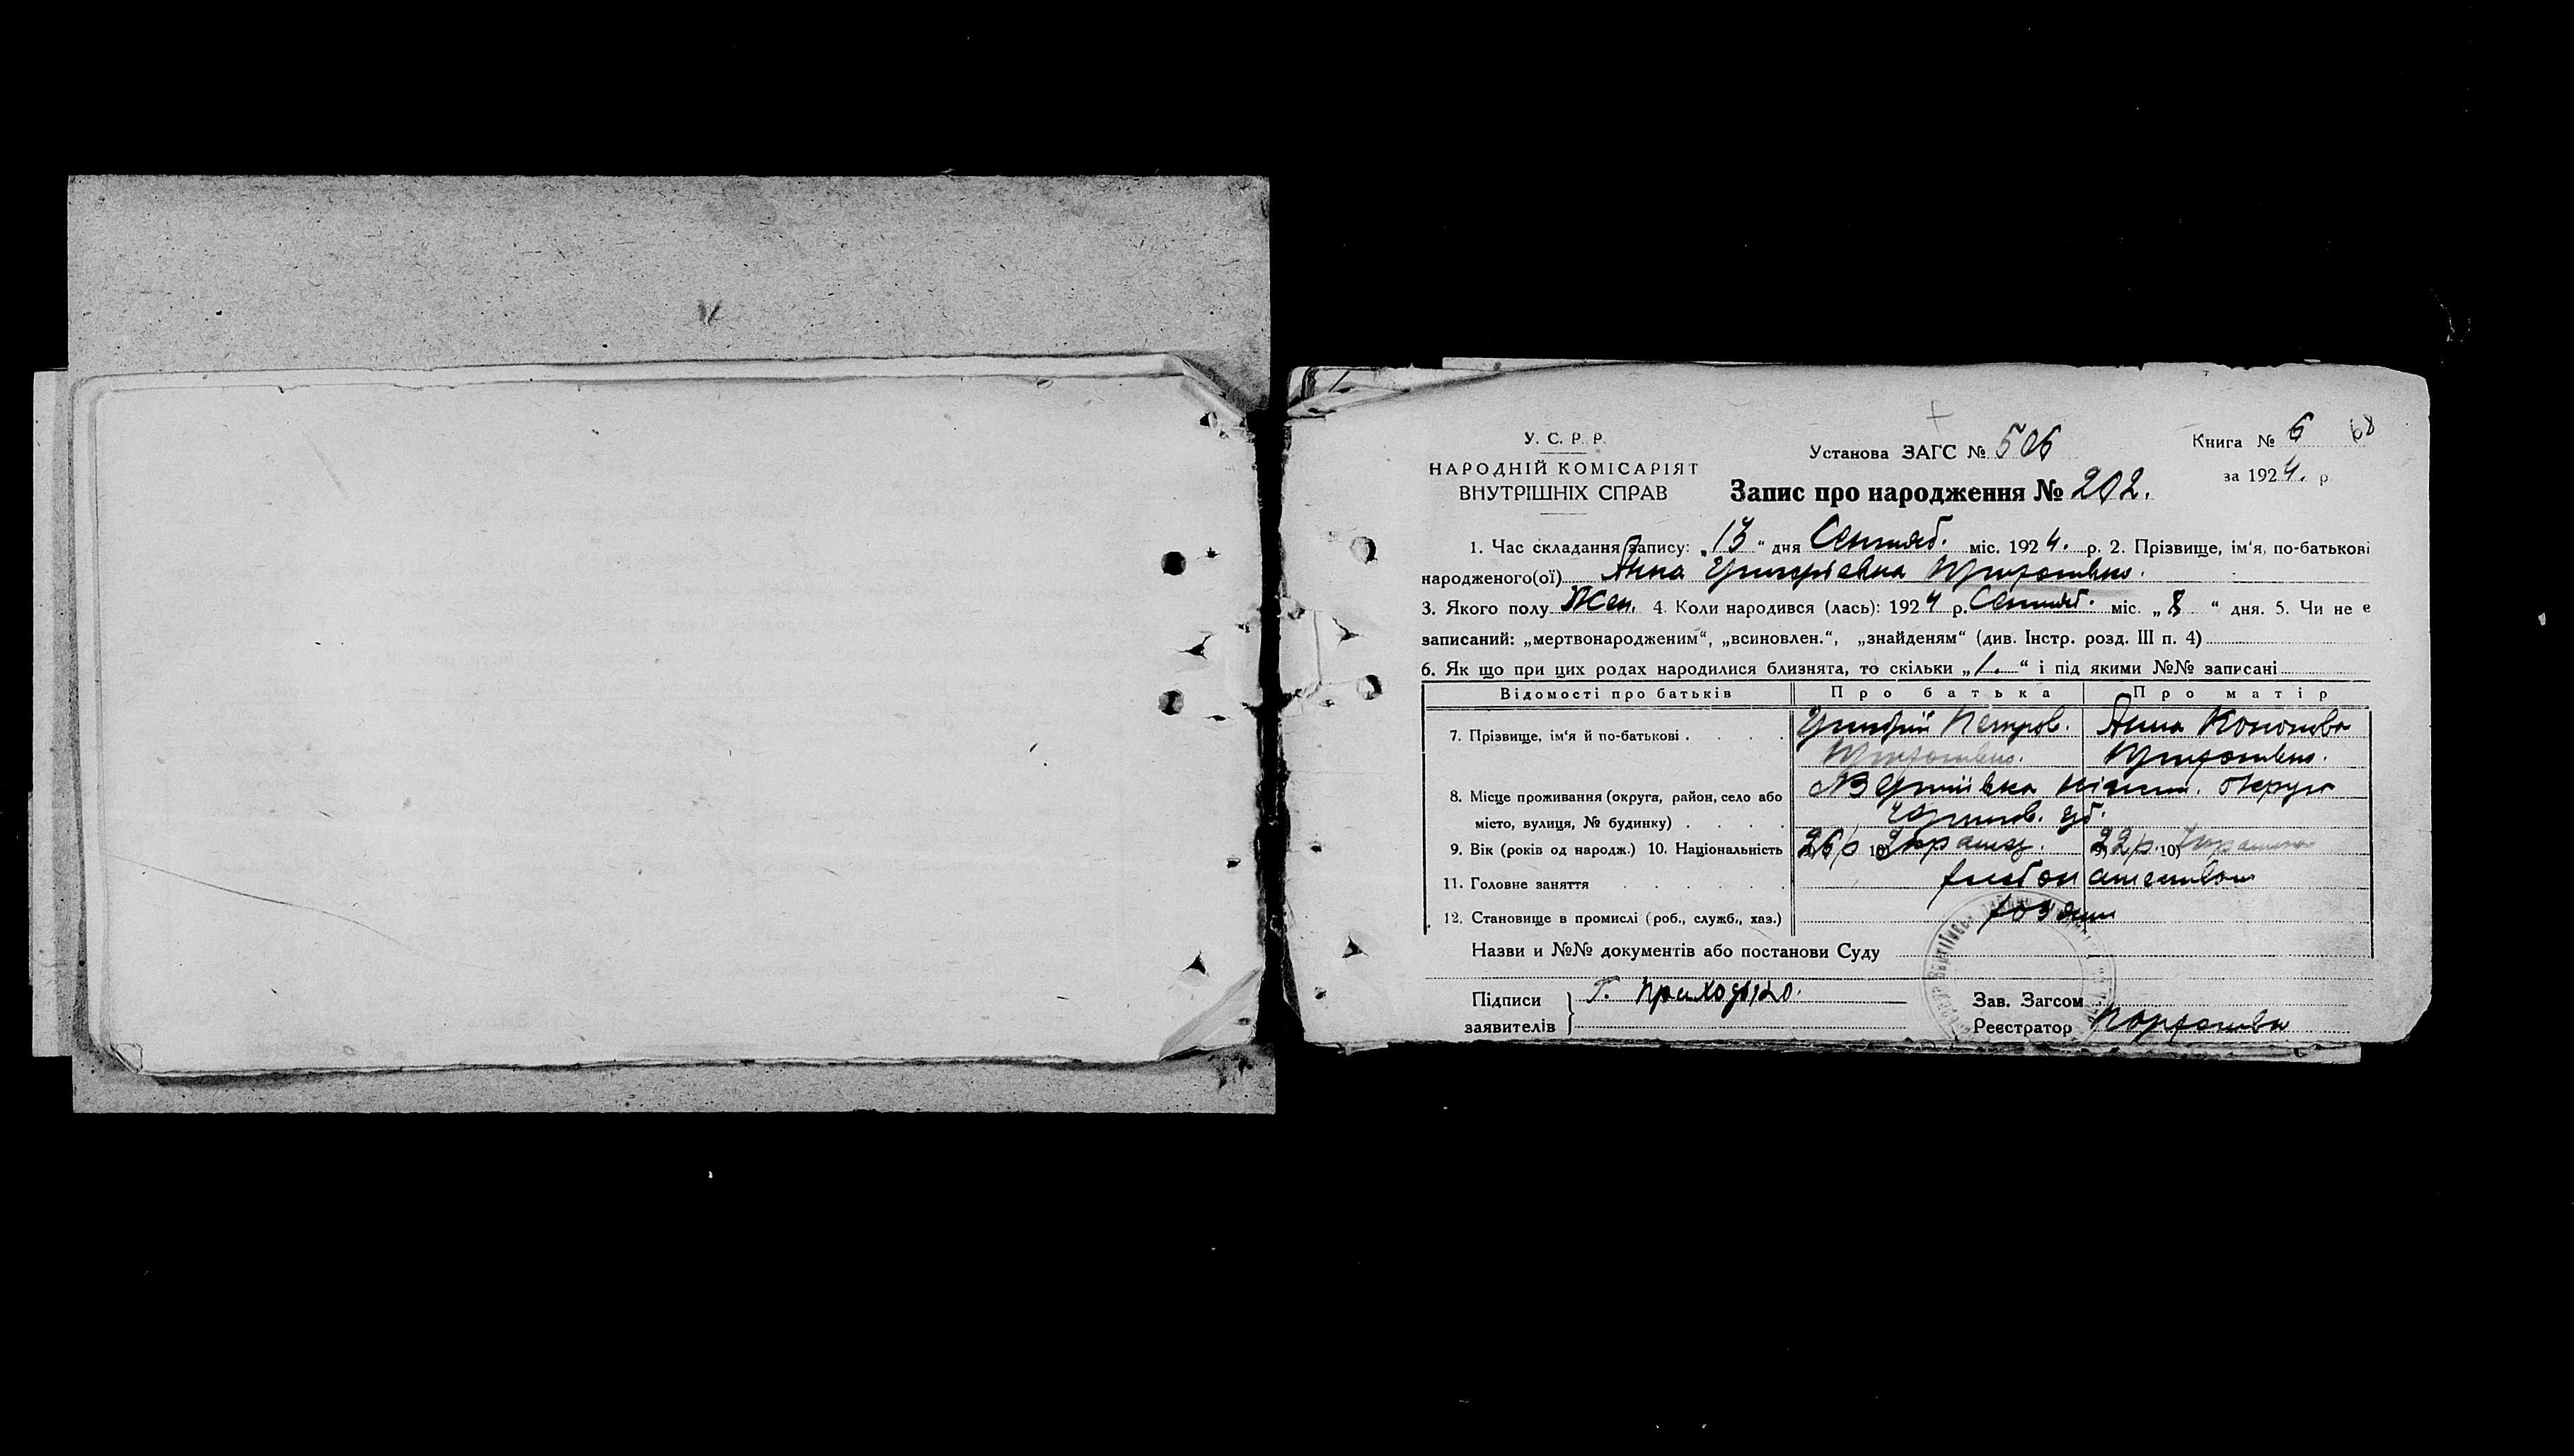 У. С. Р. Р.
НАРОДНІЙ КОМІСАРІЯТ
ВНУТРІШНІХ СПРАВ
Установа ЗАГС № 506
Книга № 6 68
за 1924. р
Запис про народження № 202.
1. Час складання запису: „13“ дня Сентяб. міс. 1924. р. 2. Прізвище, ім'я, по-батькові
народженого(ої) Анна Григоріевна
3. Якого полу Жен. 4. Коли народився (лась): 1924 р. Сентяб. міс. „8“ дня. 5. Чи не е
записаний: „мертвонародженим“, „всиновлен.“, „знайденям“ (див. Інстр. розд. III п. 4)
6. Як що при цих родах народилися близнята, то скільки „1.“ і під якими №№ записані
Відомості про батьків Про батька Про матір
7. Прізвище, ім'я й по-батькові Григорій Петров. Анна Кононова
8. Місце проживання (округа, район, село або Вертіївка Ніжин. округи
місто, вулиця, № будинку) Чернигов. губ.
9. Вік (років од народж.) 10. Національність 26 р 10) Украинц. 9) 22 р. 10)
11. Головне заняття хлебопашеством
12. Становище в промислі (роб., служб., хаз.) хозяин
Назви и №№ документів або постанови Суду
Підписи
заявителів
Г. Приходько.
Зав. Загсом
Реєстратор